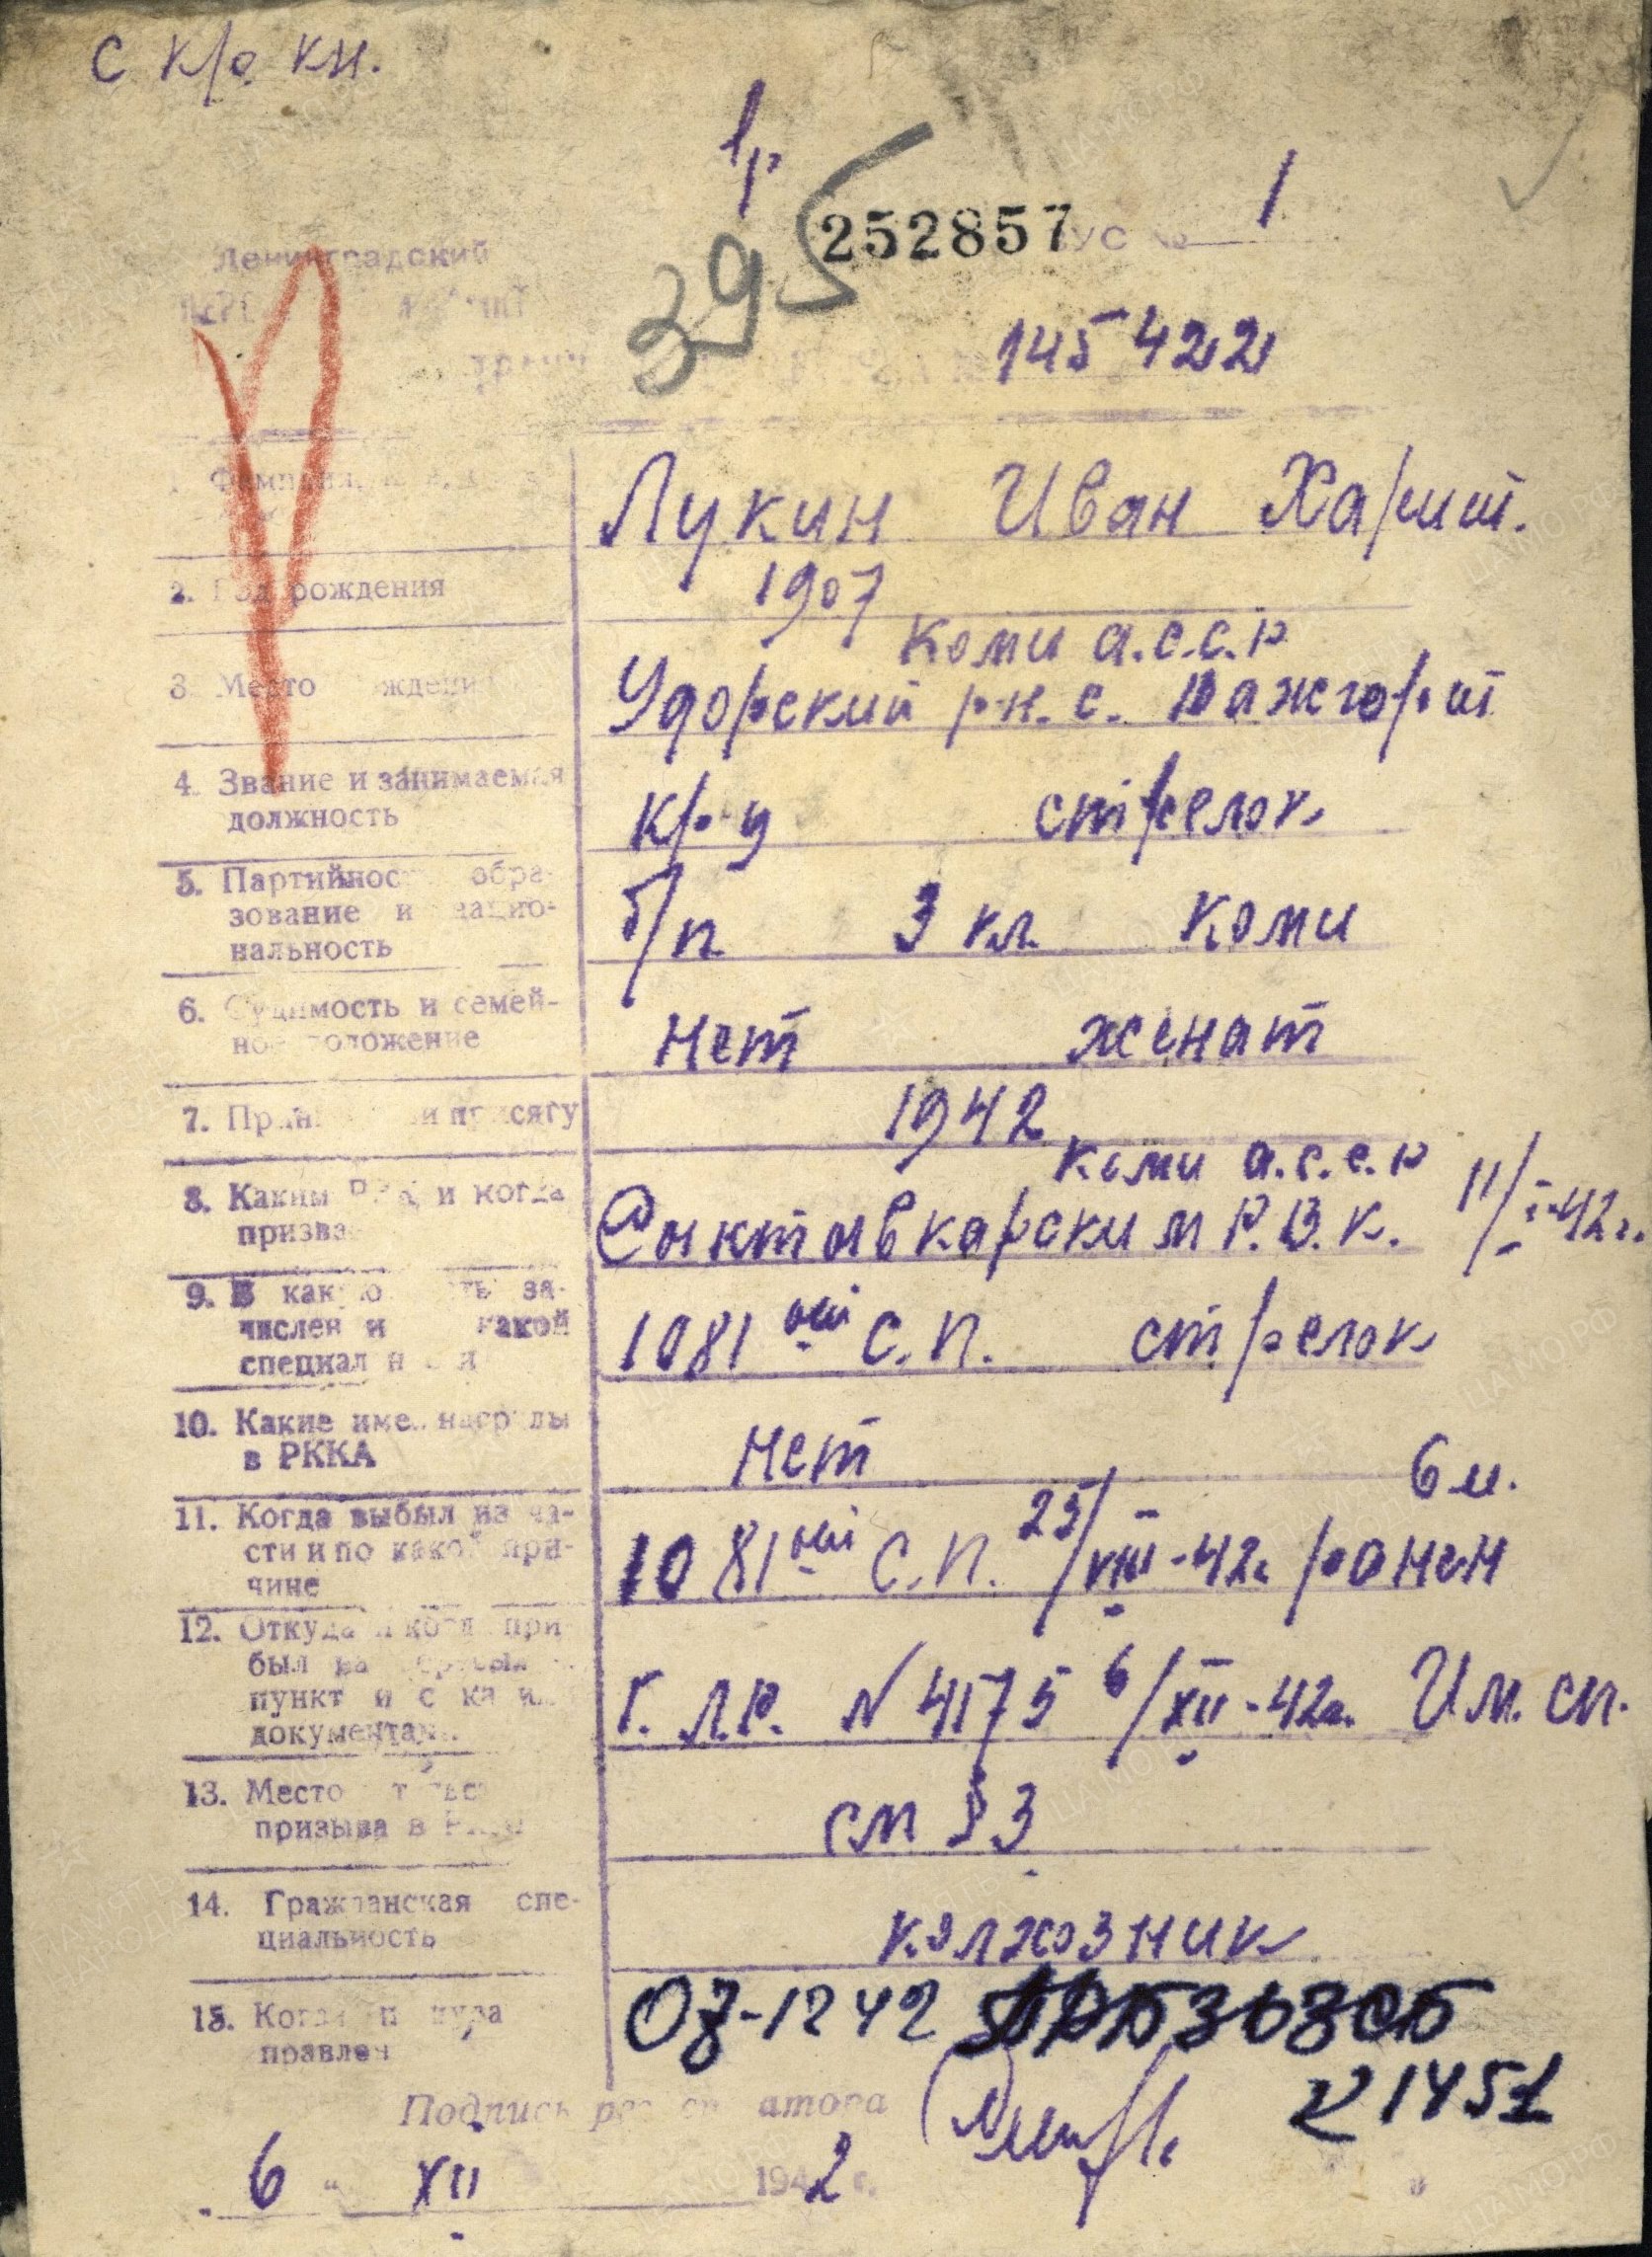 с кр. кн.
395
252857 ВУС № 1
Ленинградский
145422
Лукин Иван Харит.
2. Год рождения 1907
Коми а.с.с.р
3. Место рождения Удорский р-н. с. Важгорт
4. Звание и занимаемая
должность кр-ц стрелок
5. Партийность обра-
зование и нацио-
нальность б/п 3 кл. коми
6. Судимость и семей-
ное положение нет женат
7. Принял ли присягу 1942
Коми а.с.с.р
8. Каким РВК и когда
призван Сыктывкарским Р.В.К. 11/I-42г.
9. В какую часть за-
числен и какой
специальности 1081ый с.п. стрелок
10. Какие имел награды
в РККА нет
6 м.
11. Когда выбыл из ча-
сти и по какой при-
чине 1081ый с.п. 25/VIII-42г ранен
12. Откуда и когда при
был на
пункт и с ка
документам Г.Л.Р. № 4175 6/XII-42г. Им. сп.
13. Место
призыва в см § 3
14. Гражданская спе-
циальность колхозник
15. Когда и куда
правлен 07-1242 363 СБ
№ 1451
Подпись регистратора
6 " XII 1942 г.